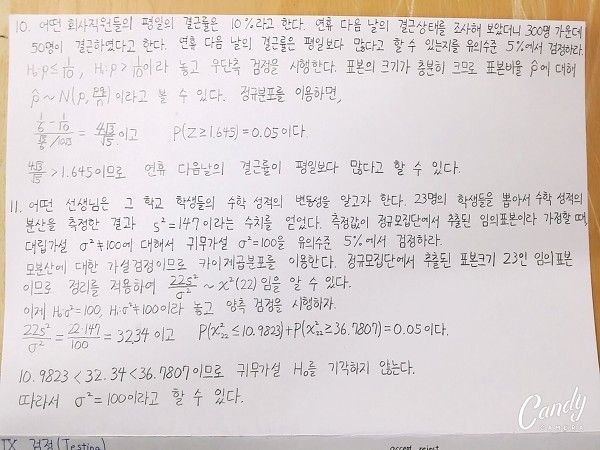 10. 어떤 회사직원들의 평일의 결근률은 10%라고 한다. 연휴 다음 날의 결근상태를 조사해 보았더니 300명 가운데
50명이 결근하였다고 한다. 연휴 다음 날의 결근률은 평일보다 많다고 할 수 있는지를 유의수준 5%에서 검정하라.
H₀:p≤1/10, H₁:p>1/10이라 놓고 우단측 검정을 시행한다. 표본의 크기가 충분히 크므로 표본비율 p̂에 대해
p̂~N(p, pq/n)이라고 볼 수 있다. 정규분포를 이용하면,
(1/6 - 1/10)/(√3/10√3) = 4√3/√5 이고 P(Z≥1.645)=0.05이다.
4√3/√5 > 1.645이므로 연휴 다음날의 결근률이 평일보다 많다고 할 수 있다.
11. 어떤 선생님은 그 학교 학생들의 수학 성적의 변동성을 알고자 한다. 23명의 학생들을 뽑아서 수학 성적의
분산을 측정한 결과 s²=147이라는 수치를 얻었다. 측정값이 정규모집단에서 추출된 임의표본이라 가정할 때,
대립가설 σ²≠100에 대해서 귀무가설 σ²=100을 유의수준 5%에서 검정하라.
모분산에 대한 가설검정이므로 카이제곱분포를 이용한다. 정규모집단에서 추출된 표본크기 23인 임의표본
이므로 정리를 적용하여 22s²/σ² ~ χ²(22)임을 알 수 있다.
이제 H₀:σ²=100, H₁:σ²≠100이라 놓고 양측 검정을 시행하자.
22s²/σ² = 22·147/100 = 32.34 이고 P(χ²₂₂≤10.9823)+P(χ²₂₂≥36.7807)=0.05이다.
10.9823<32.34<36.7807이므로 귀무가설 H₀를 기각하지 않는다.
따라서 σ²=100이라고 할 수 있다.
Candy
CAMERA
IX 검정(Testing)
accept reject